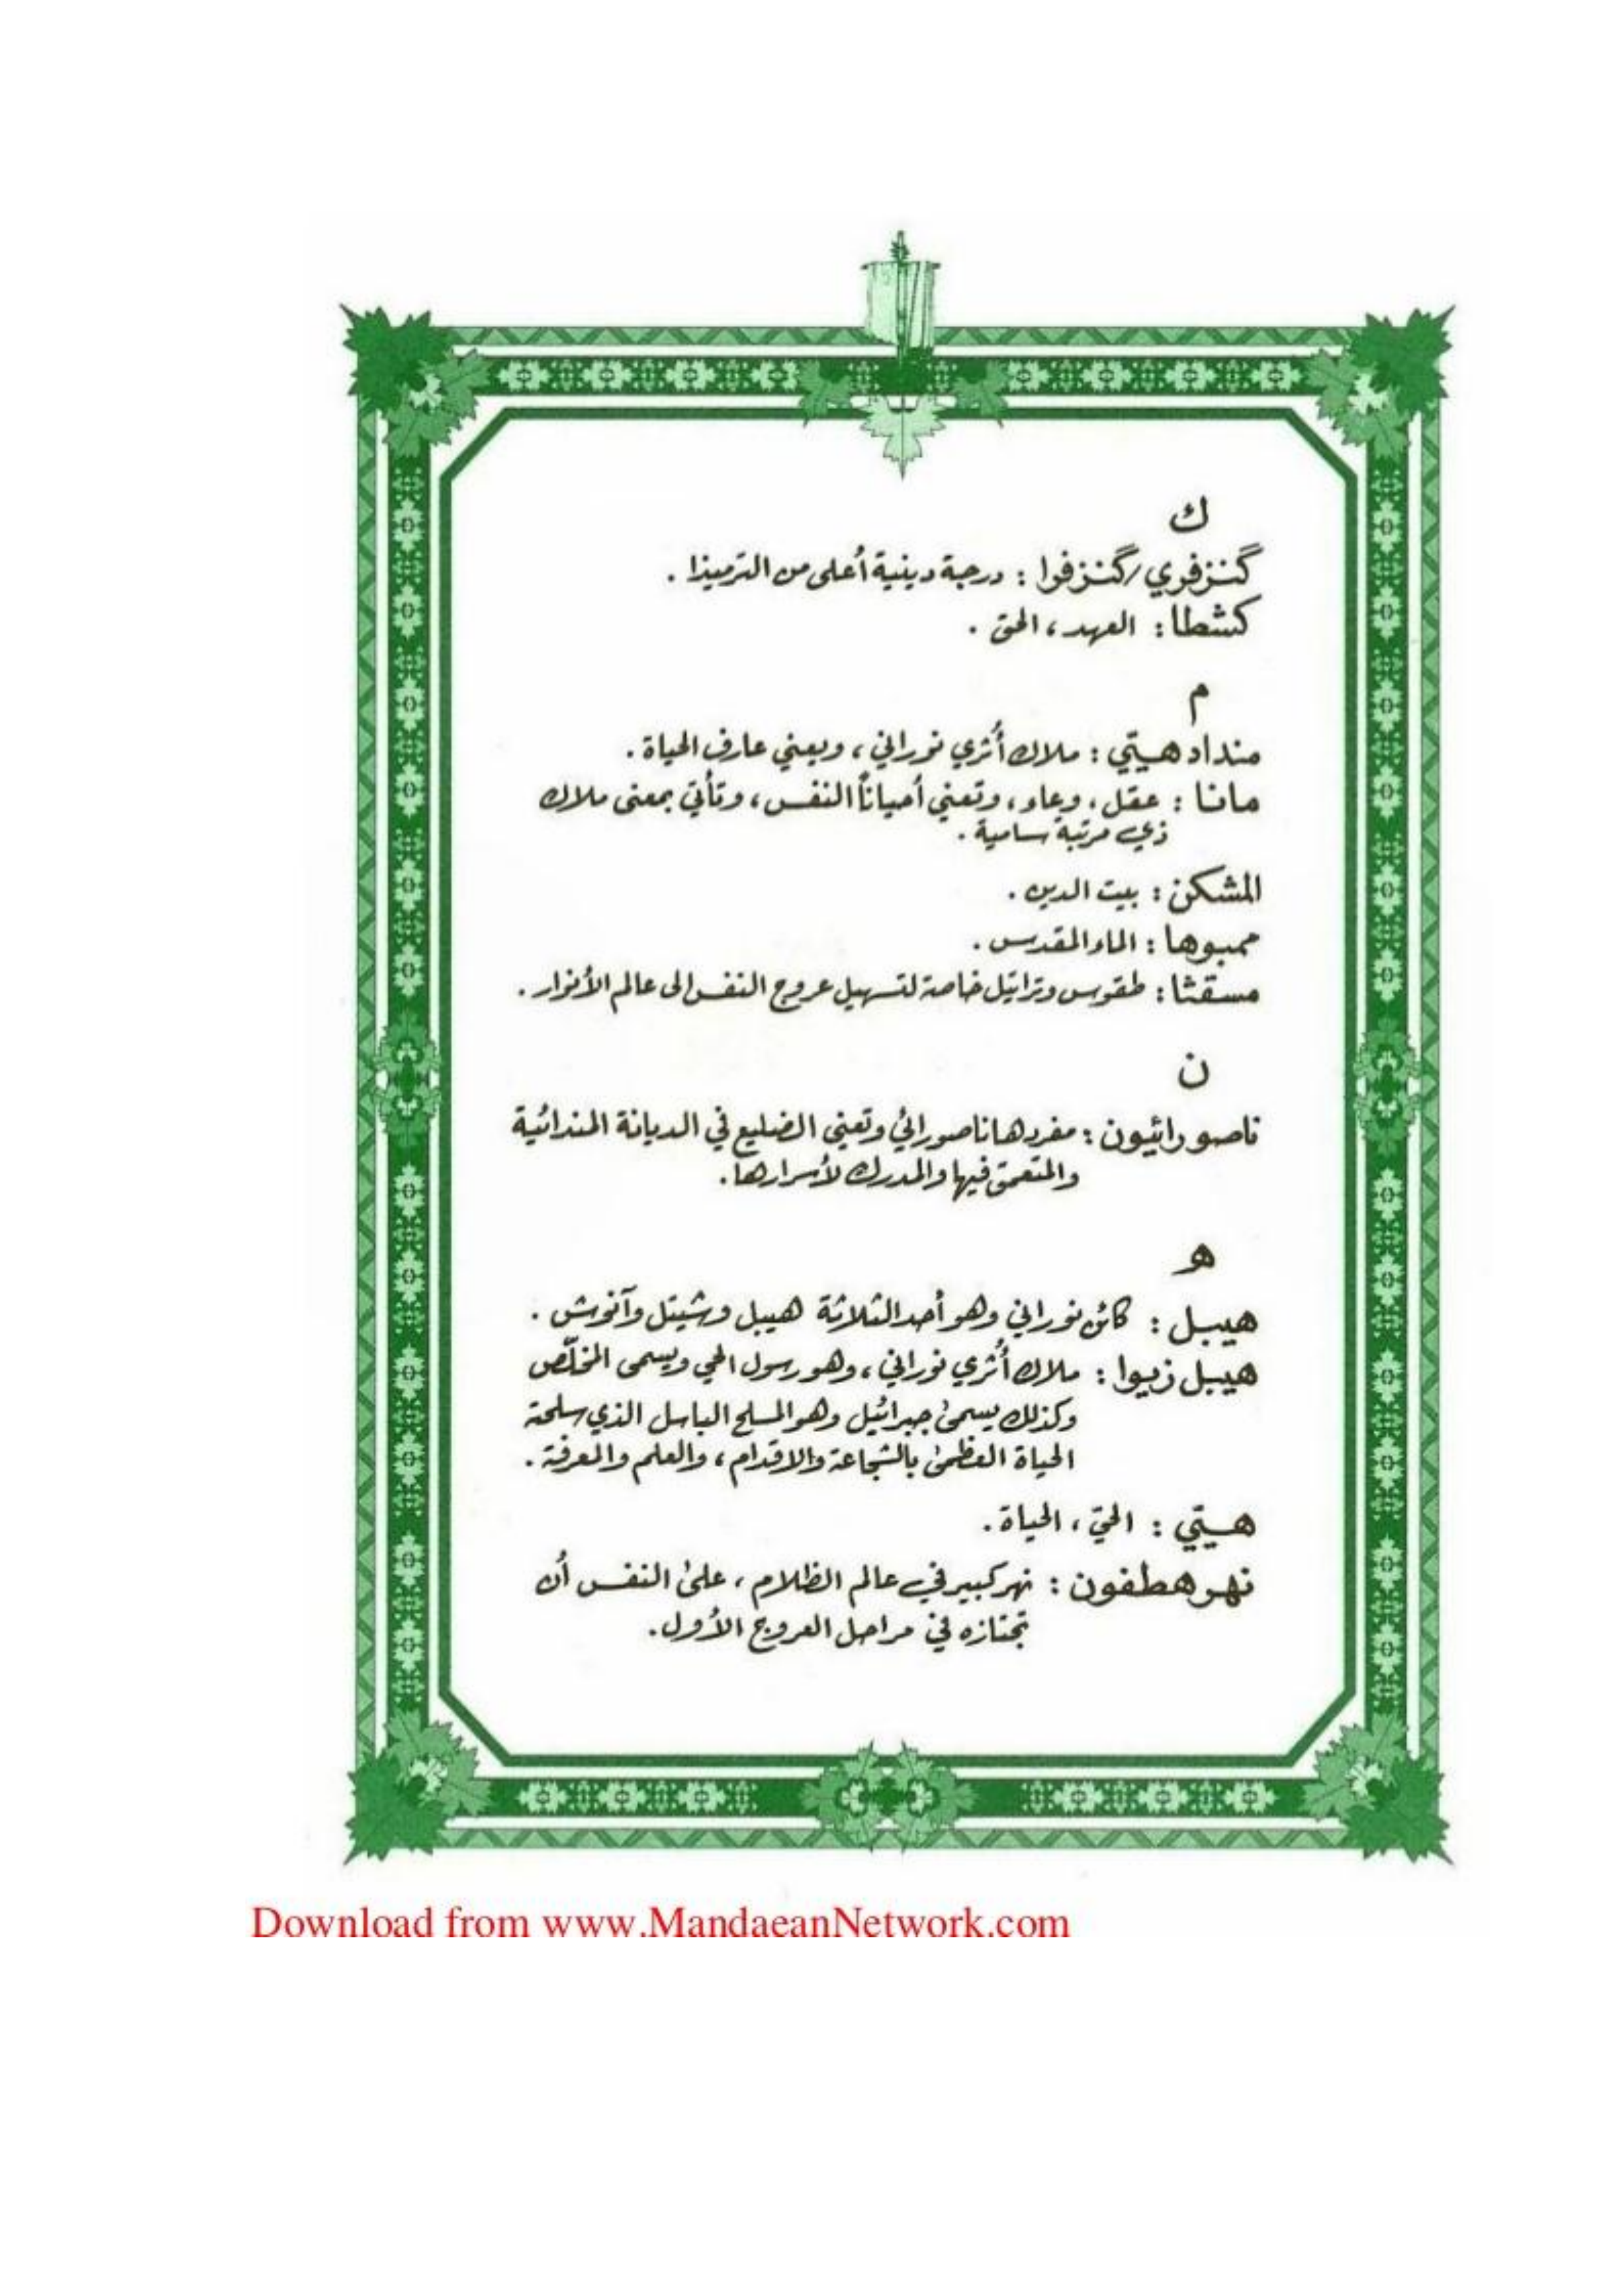 ك
گنزفري/گنزفوا : درجة دينية أعلى من الترميذا .
كشطا : العهد ، الحق .
م
منداد هيّي : ملاك أثري نوراني ، ويعني عارف الحياة .
مانا : عقل ، وعاء ، وتعني أحياناً النفس ، وتأتي بمعنى ملاك
ذي مرتبة سامية .
المشكن : بيت الدين .
ممبوها : الماء المقدس .
مسقثا : طقوس وتراتيل خاصة لتسهيل عروج النفس الى عالم الأنوار .
ن
ناصورائيون : مفردها ناصورائي وتعني الضليع في الديانة المندائية
والمتعمق فيها والمدرك لأسرارها .
هـ
هيبل : كائن نوراني وهو أحد الثلاثة هيبل وشيتل وآنوش .
هيبل زيوا : ملاك أثري نوراني ، وهو رسول الحي ويسمى المخلّص
وكذلك يسمى جبرائيل وهو المسلح الباسل الذي سلحته
الحياة العظمى بالشجاعة والاقدام ، والعلم والمعرفة .
هيّي : الحيّ ، الحياة .
نهر هطفون : نهر كبير في عالم الظلام ، على النفس أن
تجتازه في مراحل العروج الأول .
Download from www.MandaeanNetwork.com